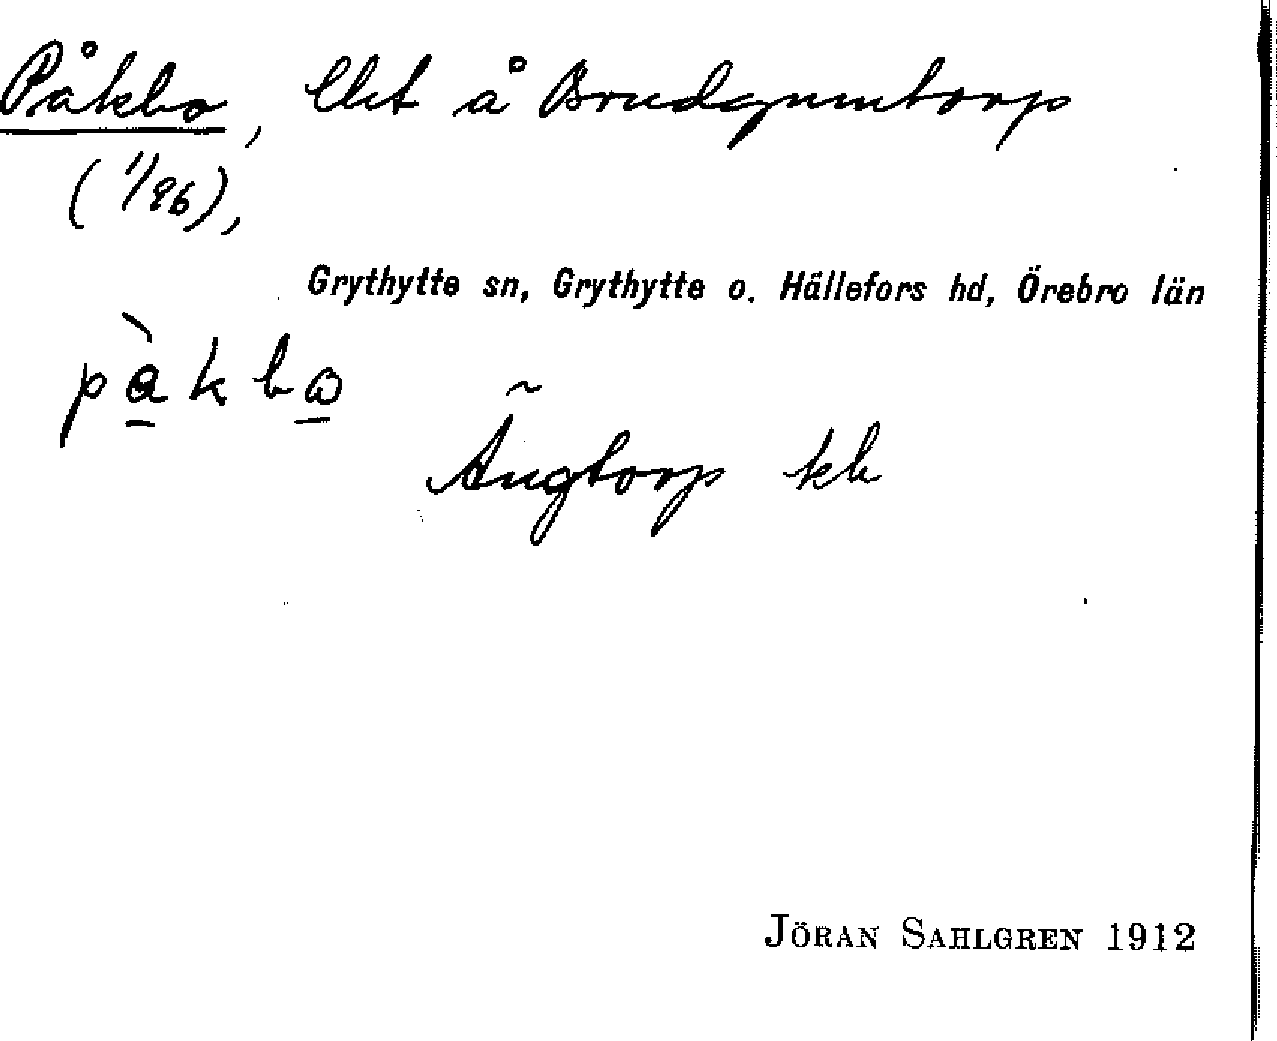 Påkbo, lht å Brudgumtorp
(1/96),
Grythytte sn, Grythytte o. Hällefors hd, Örebro län
pàkbω
Ängtorp kb
JÖRAN SAHLGREN 1912